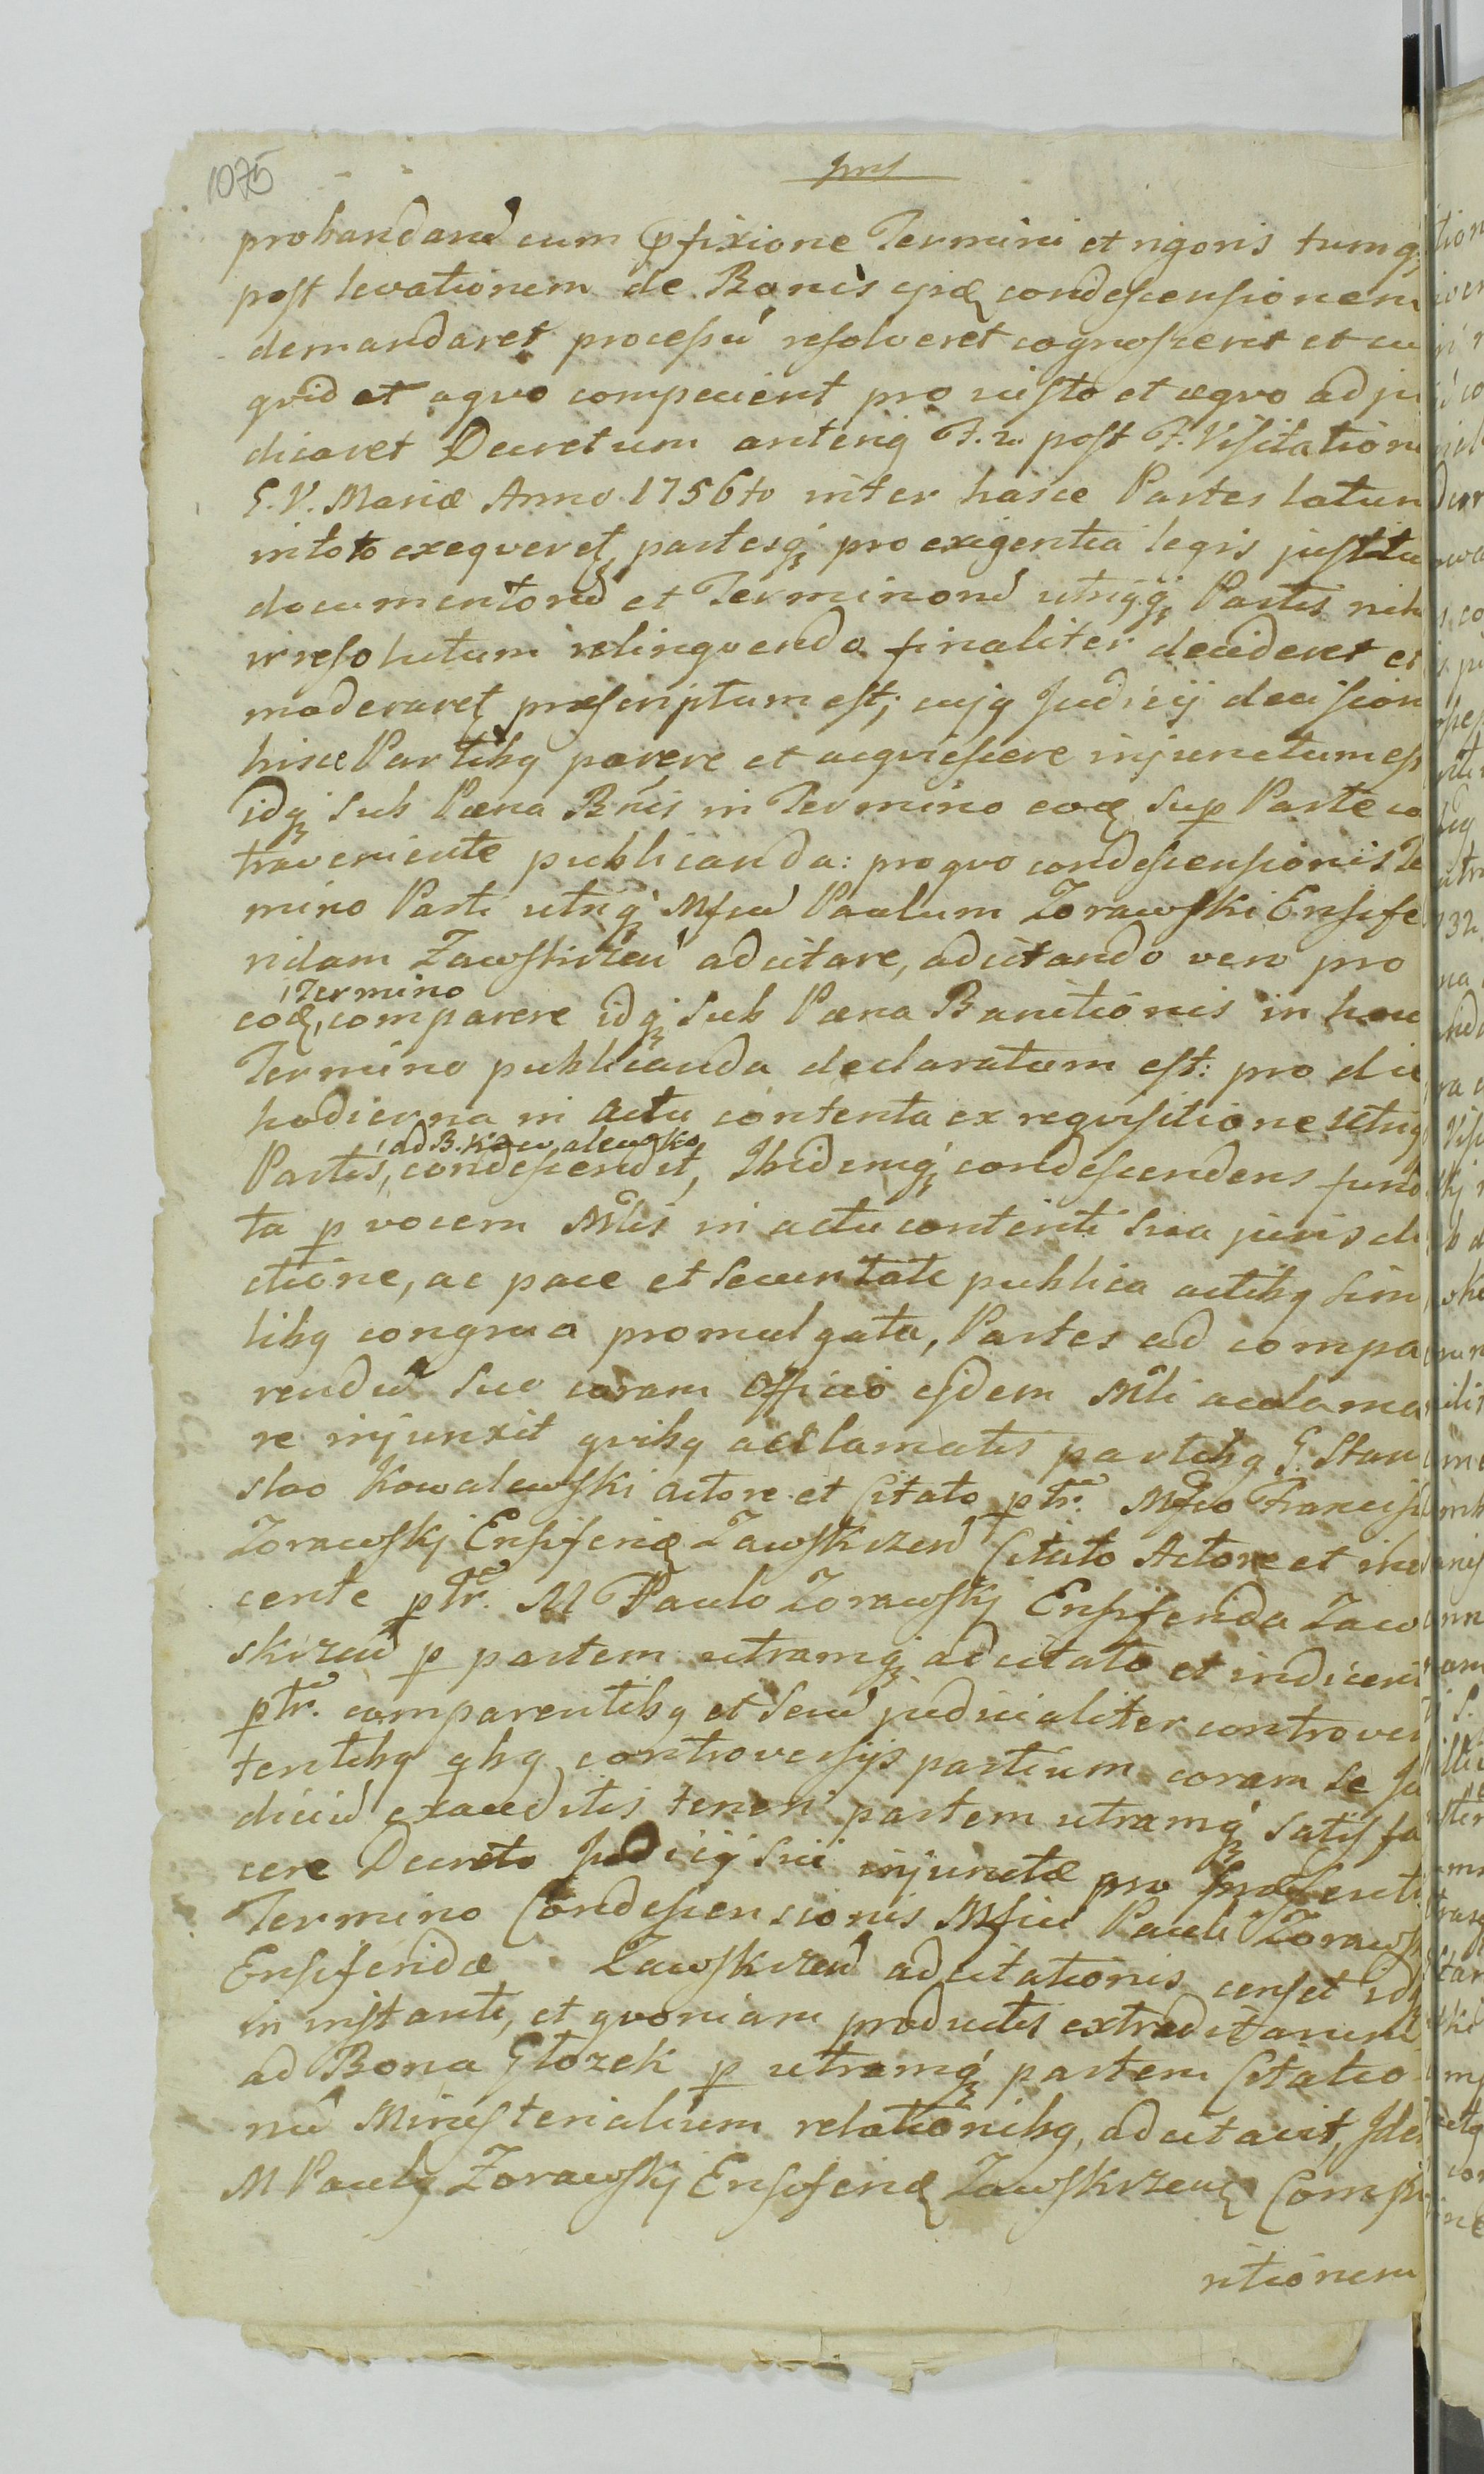 1075
probandand cum pfixione Termini et rigoris tumq;
post levationem de Bonis ejsd condescensionem
demandaret processu resolveret cognosceret et cu
quid et aquo competierit pro iusto et aequo adju
dicaret Decretum anterig F. 2. post F. Visitation
S. V. Mariæ Anno 1756to inter hasce Partes latum
intoto exequeret partesq pro exigentia legis justitiæ
documentorū et Terminorū utrisqq Partis nih
irresolutum relinquendo finaliter decideret et
moderaret præscriptum est; cujq Judicij decision
hisce Partibq parere et acquiescere injunctum est
idq sub Pæna Bnis in Termino eod sup Parte co
traveniente publicanda: pro quo condescensionis Te
mino Parti utriq Mfcū Paulum Zorawski Ensife
ridam Zawskrzeń adcitare, adcitando vero pro
Termino
eod, comparere idq sub Pæna Banitionis in hoc
Termino publicanda declaratum est: pro die
hodierna in actu contenta ex requisitione utriq
ad B. Kowalewsko
Partis, condescendit, Ibidemq condescendens fund
ta p vocem Mlis in actu contenti sua jurisdi
ctione, ac pace et securitate publica actibq simi
libq congrua promulgata, Partes ad compa
rendū suo coram Officio ejdem Mli acclama
re injunxit quibq acclamatis partibq G. Stani
slao Kowalewski actore et Citato ptr. Mfco Francis
Zorawskj Ensiferid Zawskrzeń Citato Actore et indu
cente ptr. M Paulo Zorawskj Ensiferida Zaw
skrzeń p partem utramq adcitato et indicent
ptr. comparentibq et secū judicialiter controver
tentibq qbq controversijs partium coram se Ju
diciū exauditis teneri partem utramq satisfa
cere Decreto Judicij sui injunctæ pro præsenti
Termino Condescensionis Mfici Pauli Zorawsk
Ensiferidæ Zawskrzeń adcitationis censet idq
in instanti, et quoniam productis extraditarum
ad Bona Głozek p utramq partem Citatio
nū Ministerialium relationibq, adcitavit, Iden
M Paulq Zorawskj Ensiferid Zawskrzeń Compa
ritionem